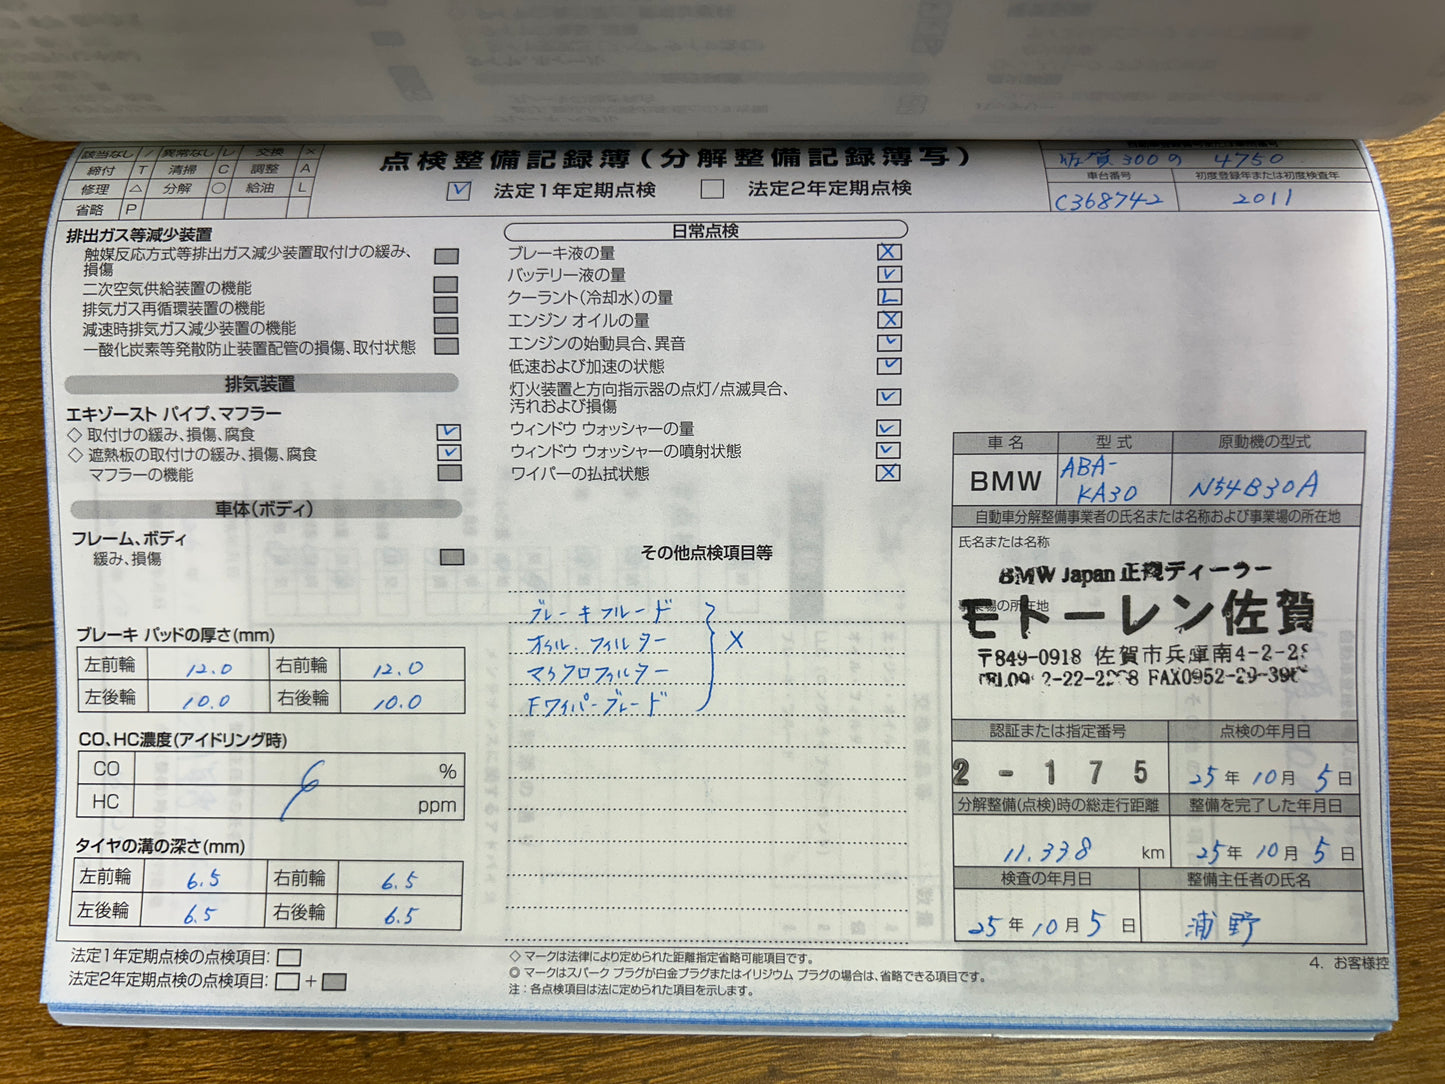 該当なし / 異常なし レ 交換 ×
締付 T 清掃 C 調整 A
修理 △ 分解 ○ 給油 L
省略 P
点検整備記録簿(分解整備記録簿写)
✓ 法定1年定期点検 法定2年定期点検
佐賀 300 の 4750
車台番号 初度登録年または初度検査年
C368742 2011
排出ガス等減少装置
触媒反応方式等排出ガス減少装置取付けの緩み、
損傷
二次空気供給装置の機能
排気ガス再循環装置の機能
減速時排気ガス減少装置の機能
一酸化炭素等発散防止装置配管の損傷、取付状態
排気装置
エキゾースト パイプ、マフラー
◇ 取付けの緩み、損傷、腐食 ✓
◇ 遮熱板の取付けの緩み、損傷、腐食 ✓
マフラーの機能
車体(ボディ)
フレーム、ボディ
緩み、損傷
ブレーキ パッドの厚さ(mm)
左前輪 12.0 右前輪 12.0
左後輪 10.0 右後輪 10.0
CO、HC濃度(アイドリング時)
CO %
HC ppm
タイヤの溝の深さ(mm)
左前輪 6.5 右前輪 6.5
左後輪 6.5 右後輪 6.5
法定1年定期点検の点検項目:
法定2年定期点検の点検項目: +
日常点検
ブレーキ液の量 X
バッテリー液の量 ✓
クーラント(冷却水)の量 L
エンジン オイルの量 X
エンジンの始動具合、異音 ✓
低速および加速の状態 ✓
灯火装置と方向指示器の点灯/点滅具合、
汚れおよび損傷 ✓
ウィンドウ ウォッシャーの量 ✓
ウィンドウ ウォッシャーの噴射状態 ✓
ワイパーの払拭状態 X
その他点検項目等
ブレーキフルード
オイル.フィルター X
マイクロフィルター
Fワイパーブレード
◇ マークは法律により定められた距離指定省略可能項目です。
◎ マークはスパーク プラグが白金プラグまたはイリジウム プラグの場合は、省略できる項目です。
注:各点検項目は法に定められた項目を示します。
車名 型式 原動機の型式
BMW ABA-
KA30 N54B30A
自動車分解整備事業者の氏名または名称および事業場の所在地
氏名または名称
BMW Japan 正規ディーラー
事業場の所在地
モトーレン佐賀
〒849-0918 佐賀市兵庫南4-2-28
FAX0952-29-
認証または指定番号 点検の年月日
2 - 175 25 年 10 月 5 日
分解整備(点検)時の総走行距離 整備を完了した年月日
11.338 km 25 年 10 月 5 日
検査の年月日 整備主任者の氏名
25 年 10 月 5 日 浦野
4. お客様控